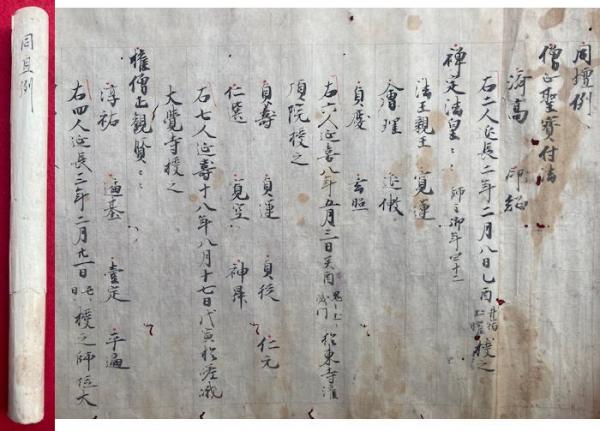 同旦例
同壇例
僧正聖寳付法
済高 印
右二人延長二年二月八日乙酉 授之
禅定法皇〻〻 師主御年四十二
法王親王 寛蓮
會理 延
貞 玄照
右六人延喜八年五月三日癸酉 於東寺灌
頂院授之
貞壽 貞運 貞従 仁元
仁 寛空 神
右七人延喜十八年八月十七日代寅於嵯峨
大覺寺授之
権僧正観賢〻〻
淳祐 逼基 壹定 平遍
右四人延長三年二月廿一日 授之師位大